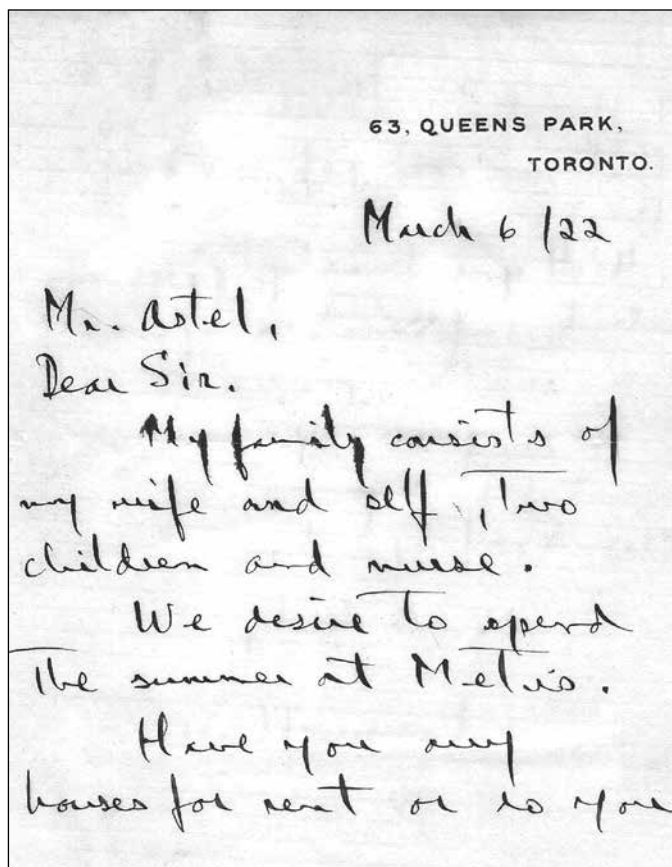 63, QUEENS PARK,
TORONTO.
March 6 /22
Mr. Astel,
Dear Sir.
My family consists of
my wife and self, two
children and nurse.
We desire to spend
The summer at Metis.
Have you any
houses for rent or do you